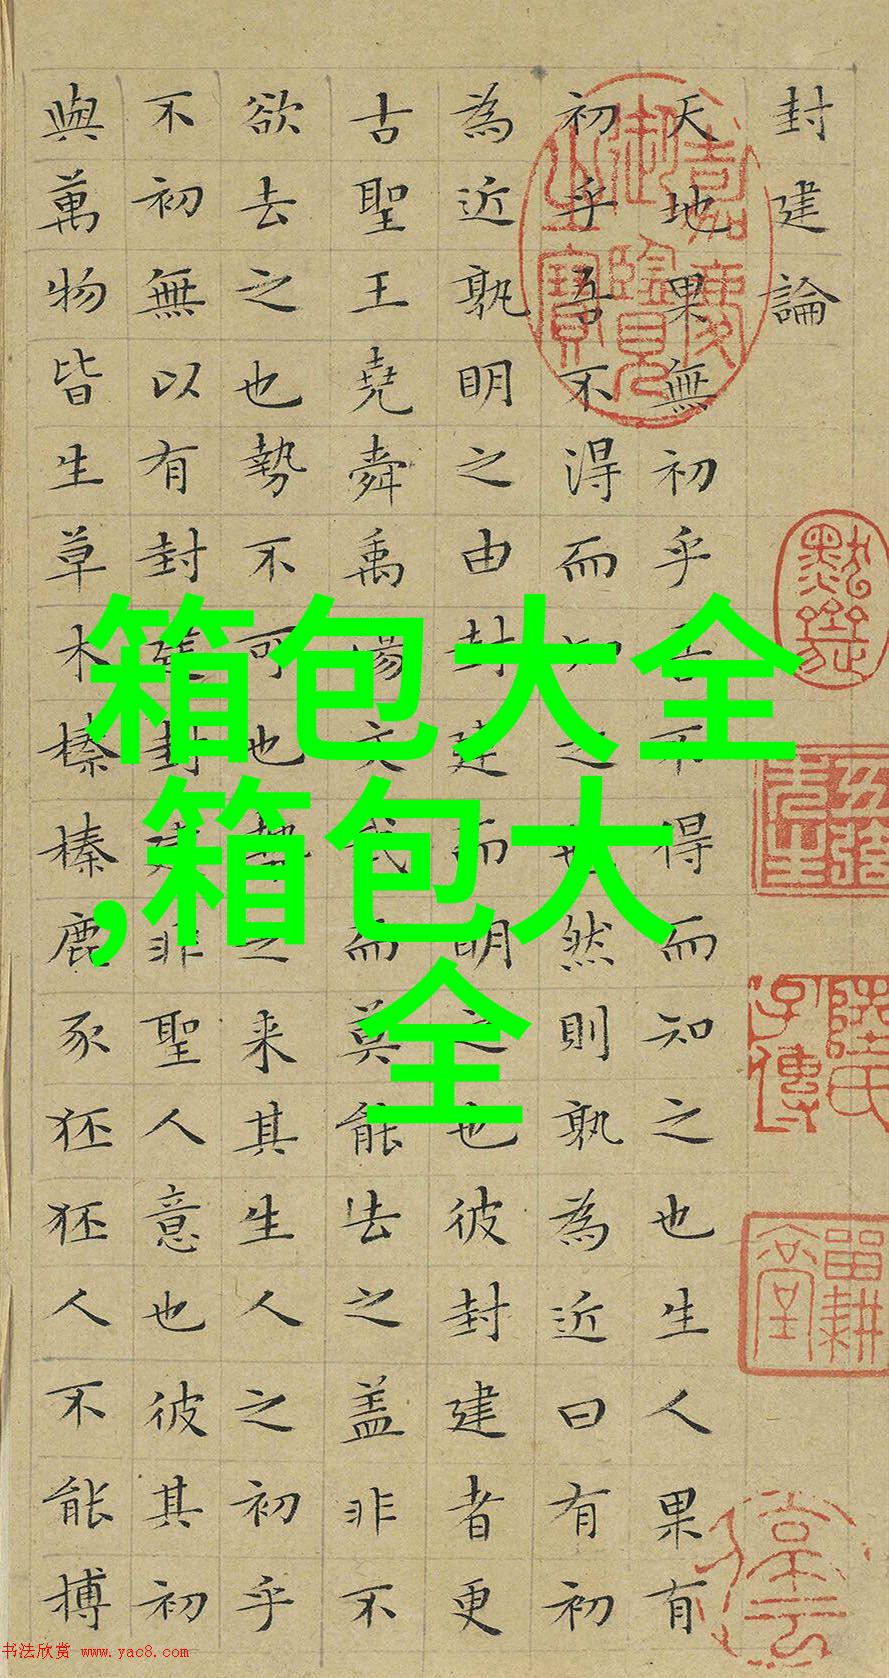 封建論
天地果無初乎吾不得而知之也生人果有
初乎吾不得而知之也然則孰為近曰有初
為近孰明之由封建而明之也彼封建者更
古聖王堯舜禹湯文武而莫能去之盖非不
欲去之也勢不可也勢之来其生人之初乎
不初無以有封建封建非聖人意也彼其初
與萬物皆生草木榛榛鹿豕狉狉人不能搏
嘉慶
御覽
之寶
陸氏
子傳
畱耕
堂
箱包大全
,箱包大
全
书法欣赏 www.yac8.com